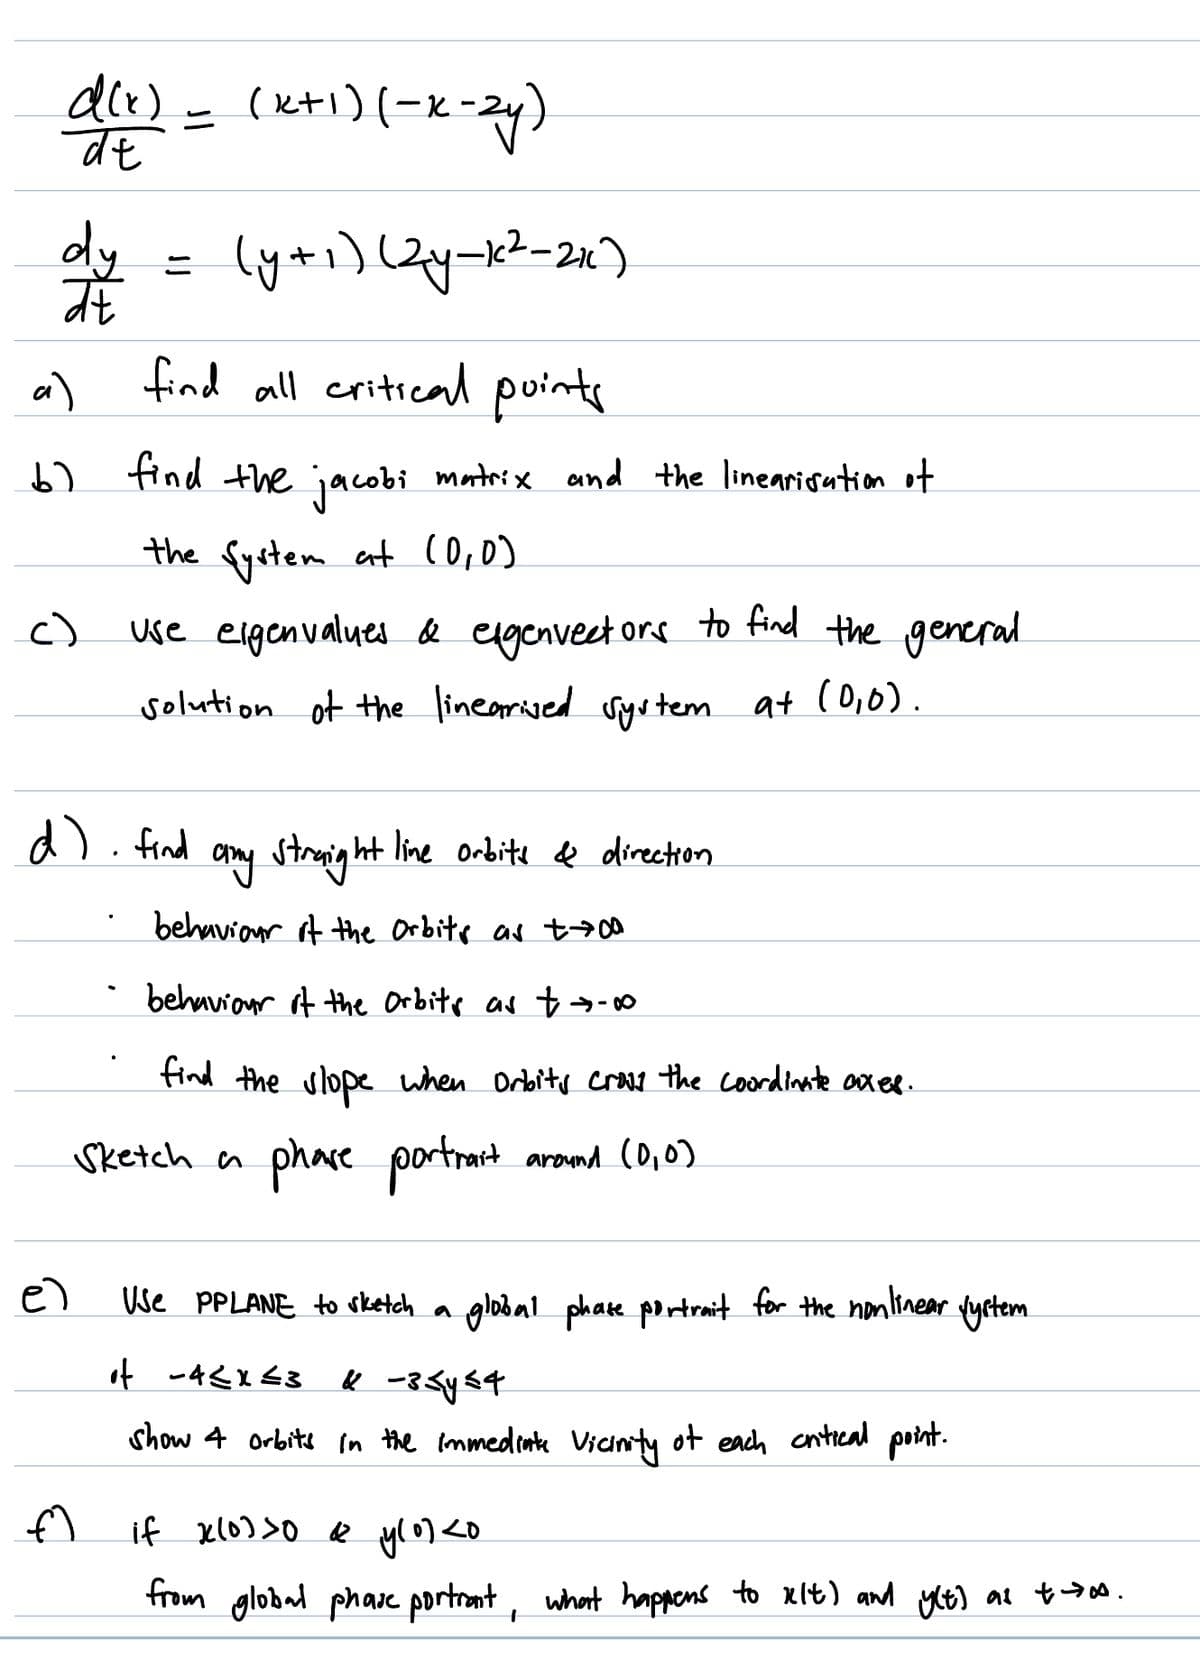 d(x)/dt = (x+1)(-x-2y)
dy/dt = (y+1)(2y-x²-2x)
a) find all critical points
b) find the jacobi matrix and the linearisation of
the system at (0,0)
c) use eigenvalues & eigenvectors to find the general
solution of the linearised system at (0,0).
d) . find any straight line orbits & direction
· behaviour of the orbits as t→∞
· behaviour of the orbits as t→-∞
· find the slope when orbits cross the coordinate axes.
sketch a phase portrait around (0,0)
e) Use PPLANE to sketch a global phase portrait for the nonlinear system
if -4≤x≤3 & -3≤y≤4
show 4 orbits in the immediate vicinity of each critical point.
f) if x(0)>0 & y(0)<0
from global phase portrait, what happens to x(t) and y(t) as t→∞.